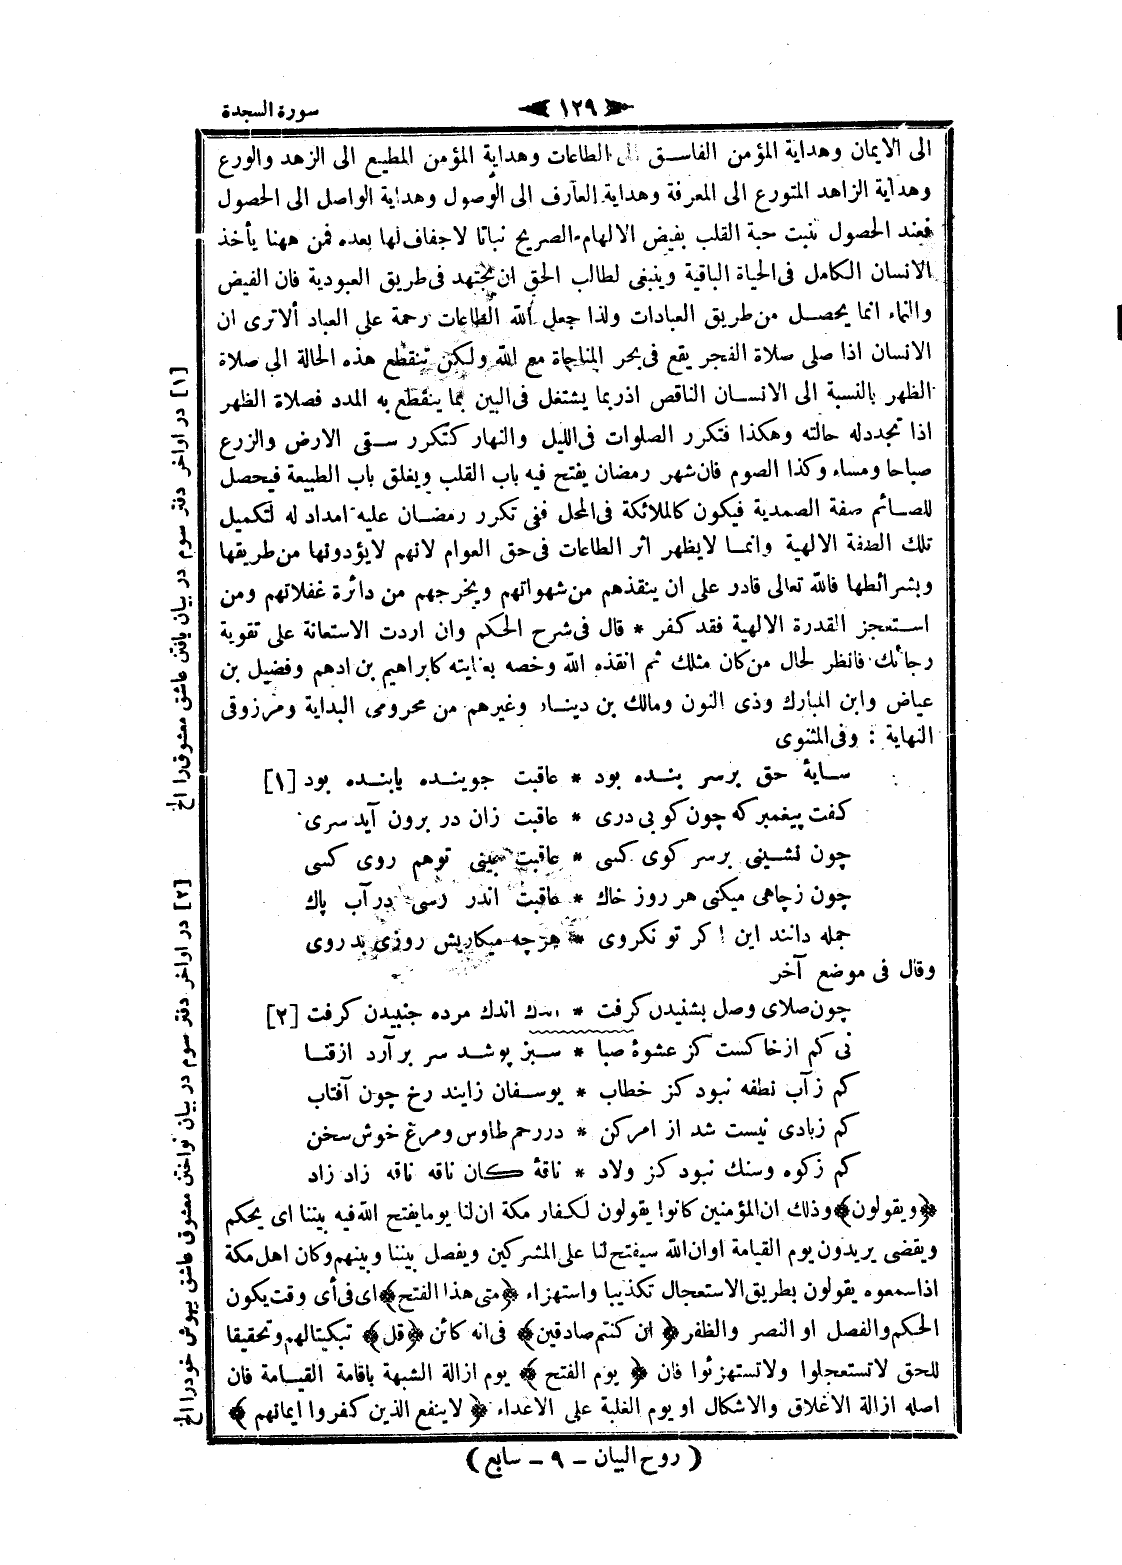 سورة السجدة
١٢٩
الى الايمان وهداية المؤمن الفاسق الى الطاعات وهداية المؤمن المطيع الى الزهد والورع
وهداية الزاهد المتورع الى المعرفة وهداية العارف الى الوصول وهداية الواصل الى الحصول
فعند الحصول تنبت حبة القلب بفيض الالهام الصريح نباتا لاجفاف لها بعده فمن ههنا يأخذ
الانسان الكامل فى الحياة الباقية وينبغى لطالب الحق ان يجتهد فى طريق العبودية فان الفيض
والنماء انما يحصل من طريق العبادات ولذا جعل الله الطاعات رحمة على العباد ألاترى ان
الانسان اذا صلى صلاة الفجر يقع فى بحر المناجاة مع الله ولكن تنقطع هذه الحالة الى صلاة
الظهر بالنسبة الى الانسان الناقص اذربما يشتغل فى البين بما ينقطع به المدد فصلاة الظهر
اذا تجددله حالته وهكذا فتكرر الصلوات فى الليل والنهار كتكرر سقى الارض والزرع
صباحا ومساء وكذا الصوم فان شهر رمضان يفتح فيه باب القلب ويغلق باب الطبيعة فيحصل
للصائم صفة الصمدية فيكون كالملائكة فى المحل ففى تكرر رمضان عليه امداد له لتكميل
تلك الصفة الالهية وانما لايظهر اثر الطاعات فى حق العوام لانهم لايؤدونها من طريقها
وبشرائطها فالله تعالى قادر على ان ينقذهم من شهواتهم ويخرجهم من دائرة غفلاتهم ومن
استعجز القدرة الالهية فقد كفر * قال فى شرح الحكم وان اردت الاستعانة على تقوية
رجائك فانظر لحال من كان مثلك ثم انقذه الله وخصه بعنايته كابراهيم بن ادهم وفضيل بن
عياض وابن المبارك وذى النون ومالك بن دينار وغيرهم من محرومى البداية ومرزوقى
النهاية : وفى المثنوى
سايۀ حق برسر بنده بود * عاقبت جوينده يابنده بود [١]
كفت پيغمبر كه چون كوبى درى * عاقبت زان در برون آيد سرى
چون نشينى برسر كوى كسى * عاقبت بينى توهم روى كسى
چون زچاهى ميكنى هر روز خاك * عاقبت اندر رسى در آب پاك
جمله دانند اين اكر تو نكروى * هرچه ميكاريش روزى بدروى
وقال فى موضع آخر
چون صلاى وصل بشنيدن كرفت * اندك اندك مرده جنبيدن كرفت [٢]
نى كم ازخاكست كز عشوۀ صبا * سبز پوشد سر برآرد ازفنا
كم زآب نطفه نبود كز خطاب * يوسفان زايند رخ چون آفتاب
كم زبادى نيست شد از امركن * دررحم طاوس ومرغ خوش سخن
كم زكوه وسنك نبود كز ولاد * ناقۀ كان ناقه ناقه زاد زاد
﴿ويقولون﴾ وذلك ان المؤمنين كانوا يقولون لكفار مكة ان لنا يوما يفتح الله فيه بيننا اى يحكم
ويقضى يريدون يوم القيامة اوان الله سيفتح لنا على المشركين ويفصل بيننا وبينهم وكان اهل مكة
اذا سمعوه يقولون بطريق الاستعجال تكذيبا واستهزاء ﴿متى هذا الفتح﴾ اى فى أى وقت يكون
الحكم والفصل او النصر والظفر ﴿ان كنتم صادقين﴾ فى انه كائن ﴿قل﴾ تبكيتا لهم وتحقيقا
للحق لاتستعجلوا ولاتستهزئوا فان ﴿يوم الفتح﴾ يوم ازالة الشبهة باقامة القيامة فان
اصله ازالة الاغلاق والاشكال او يوم الغلبة على الاعداء ﴿لاينفع الذين كفروا ايمانهم﴾
[١] در اواخر دفتر سوم در بيان يافتن عاشق معشوق را الخ
[٢] در اواخر دفتر سوم در بيان نواختن معشوق عاشق بيهوش خودرا الخ
( روح البيان – ٩ – سابع )